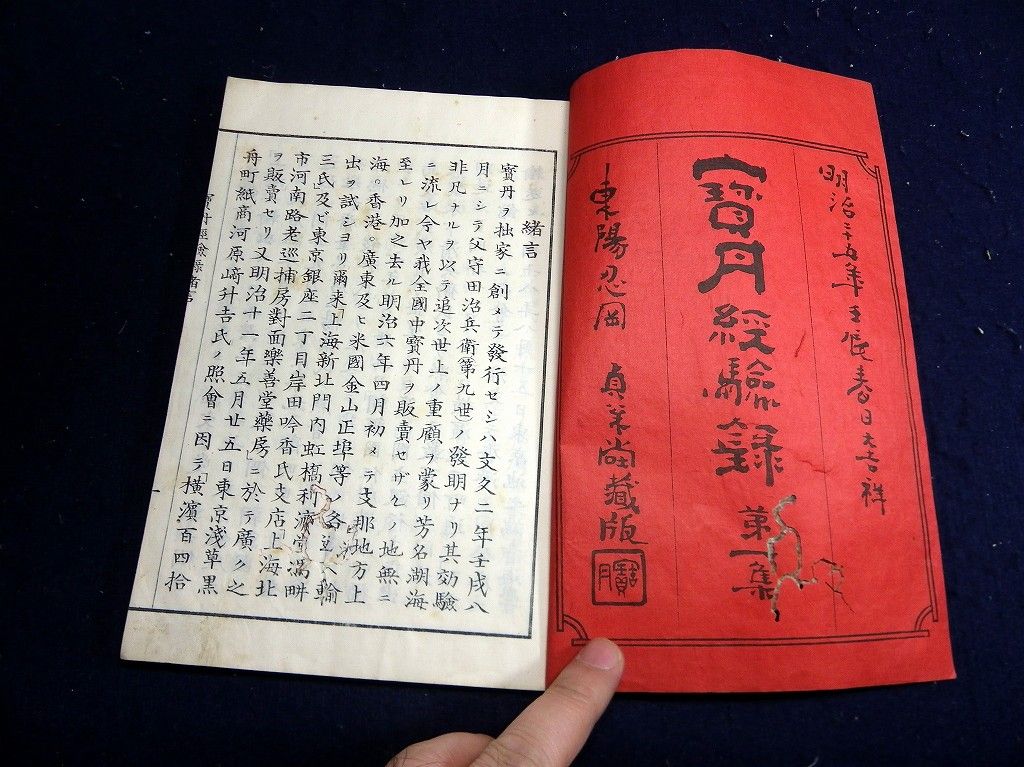 明治二十五年壬辰春日大吉祥
寶丹經驗錄 第一集
東陽忍岡 貞萊尚藏版
寶丹
緒言
寶丹ヲ拙家ニ創メテ發行セシハ文久二年壬戌八
月ニシテ父守田治兵衛(第九世)ノ發明ナリ其効驗
非凡ナルヲ以テ追次世上ノ重顧ヲ蒙リ芳名湖海
ニ流レ今ヤ我全國中寶丹ヲ販賣セザルノ地無ニ
至レリ加之去ル明治六年四月初メテ支那地方上
海。香港。廣東及ヒ米國金山正埠等ノ各
出ヲ試シヨリ爾来「上海新北門內虹橋利濟堂馮畊
三氏」及ビ東京銀座二丁目岸田吟香氏支店「上海北
市河南路老巡捕房對面樂善堂藥房」ニ於テ廣ク之
ヲ販賣セリ又明治十一年五月廿五日東京淺草黑
舟町紙商河原﨑升吉氏ノ照會ニ因テ「橫濱百四拾
寶丹經驗錄緒言
一